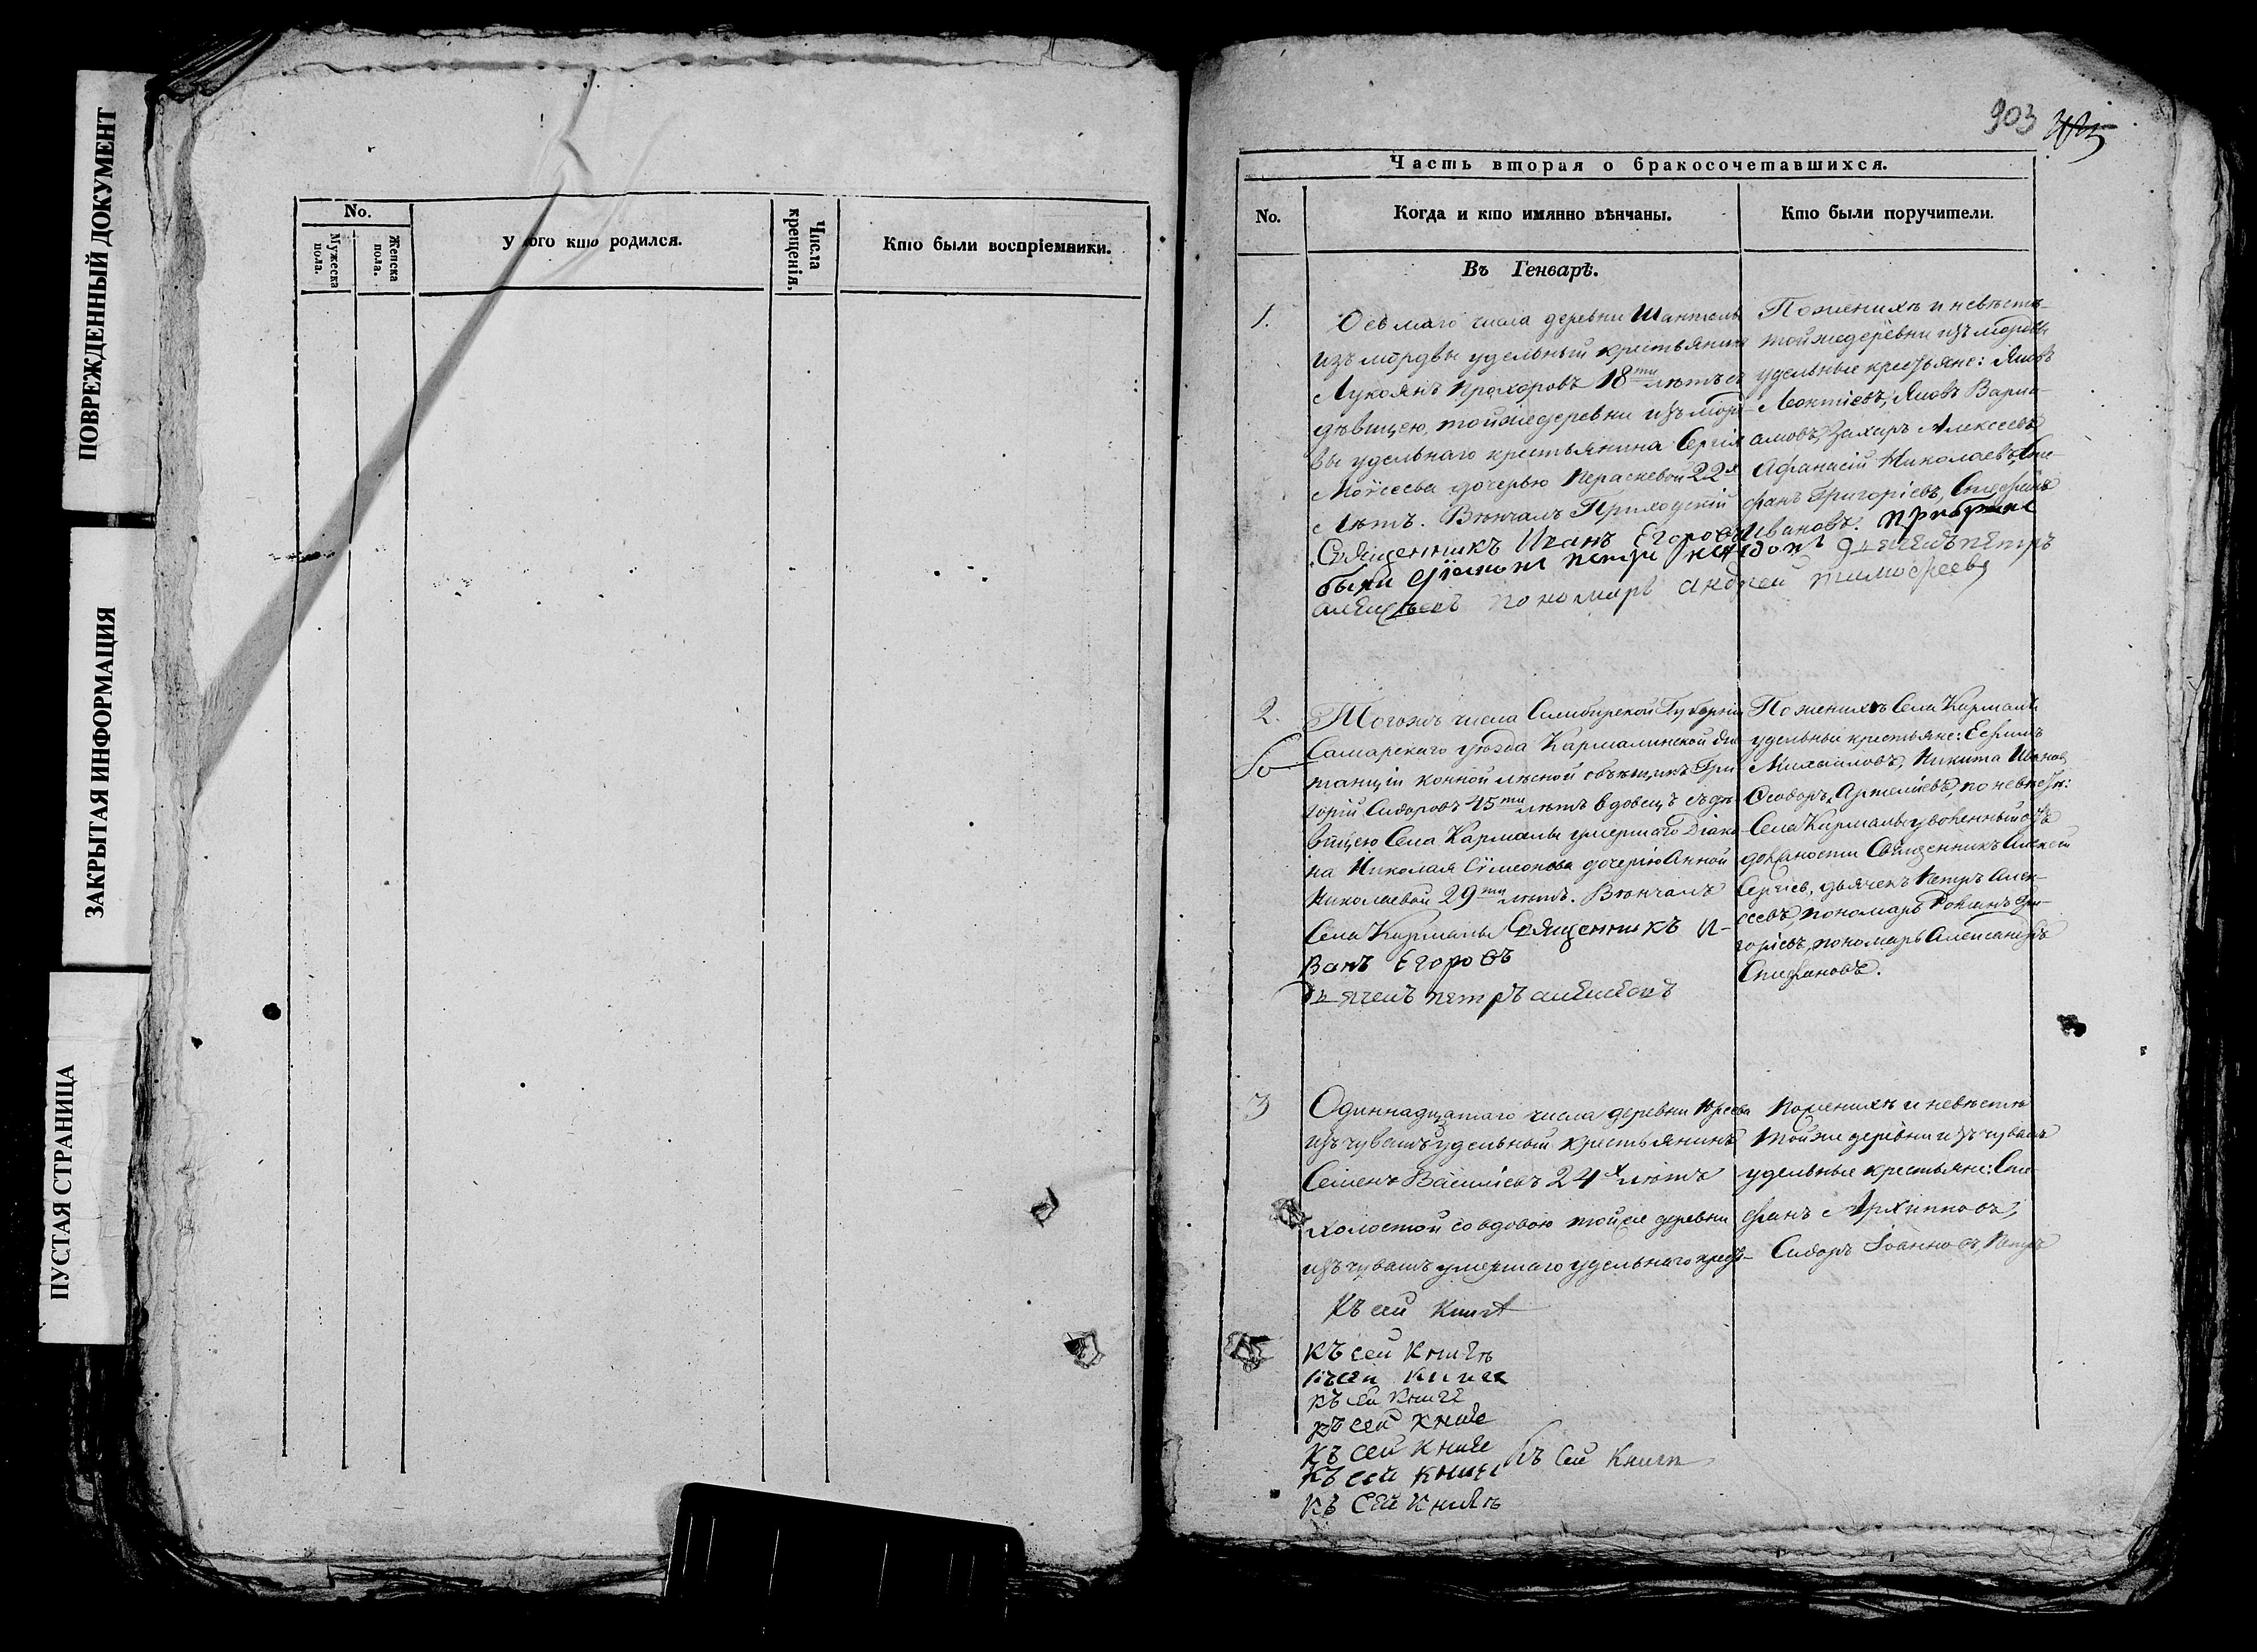 ПОВРЕЖДЕННЫЙ ДОКУМЕНТ
ЗАКРЫТАЯ ИНФОРМАЦИЯ
ПУСТАЯ СТРАНИЦА
No.
Мужеска пола.
Женска пола.
У кого кто родился.
Числа крещенія.
Кто были воспріемники.
903
Часть вторая о бракосочетавшихся.
No.
Когда и кто имянно вѣнчаны.
Кто были поручители.
Въ Генварѣ.
1.
Осьмаго числа деревни Шантала
изъ мордвы удельный крестьянинъ
Лукоянъ Прохоровъ 18ти лѣтъ съ
дѣвицею, тойже деревни изъ морд-
вы удельнаго крестьянина Сергія
Моисеева дочерью Параскевой 22х
Лѣтъ. Вѣнчалъ Приходскій
Священникъ Иванъ Егоровъ
были
пономарь андрей тимофеевъ
По женихѣ и невѣстѣ
тойже деревни изъ мордвы
удельные крестьяне: Яковъ
Леонтіевъ, Яковъ Варла-
амовъ, Захаръ Алексеевъ
Афанасій Николаевъ, Сте-
фанъ Григоріевъ, Стефанъ
Ивановъ. При браке
дьячекъ петръ
2.
Тогожъ числа Симбирской Губерніи
Самарскаго уѣзда Кармалинской дис-
танціи конной лѣсной объѣщикъ Гри-
горій Сидоровъ 45ти лѣтъ вдовецъ съ дѣ-
вицею Села Кармалы умершаго Діако-
на Николая Симеонова дочерію Анной
Николаевой 29ти лѣтъ. Вѣнчалъ
Села Кармалы Священникъ И-
ванъ Егоровъ
дьячекъ петръ алексеевъ
По женихѣ Села Кармалы
удельные крестьяне: Ефимъ
Михайловъ, Никита Ивановъ
Феодоръ Артеміевъ, по невѣстѣ:
Села Кармалы уволенный отъ
должности Священникъ Алексей
Сергіев, дьячекъ Петръ Алек-
сеевъ, пономарь Романъ Гри-
горіевъ, пономарь Александръ
Стефановъ.
3
Одиннадцатаго числа деревни
изъ чувашъ удельный крестьянинъ
Семенъ Васильевъ 24х лѣтъ
холостой со вдовою тойже деревни
изъ чувашъ умершаго удельнаго крестъ-
По женихѣ и невѣстѣ
Тойже деревни изъ чувашъ
удельные крестьяне: Сте-
фанъ Архипповъ,
Сидоръ Іоанновъ, Петръ
Къ сей книгѣ
къ сей книгѣ
къ сей книге
къ сей книге
къ сей книге
къ сей книге
къ сей книге
къ сей книгѣ
къ сей книгѣ